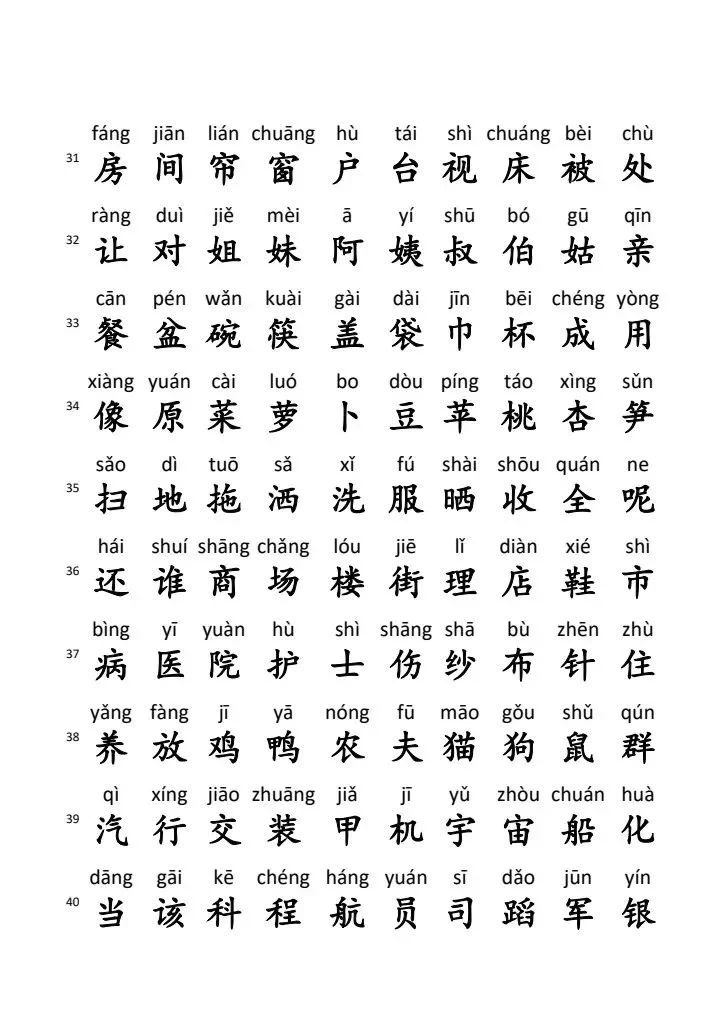 fáng jiān lián chuāng hù tái shì chuáng bèi chù
31 房 间 帘 窗 户 台 视 床 被 处
ràng duì jiě mèi ā yí shū bó gū qīn
32 让 对 姐 妹 阿 姨 叔 伯 姑 亲
cān pén wǎn kuài gài dài jīn bēi chéng yòng
33 餐 盆 碗 筷 盖 袋 巾 杯 成 用
xiàng yuán cài luó bo dòu píng táo xìng sǔn
34 像 原 菜 萝 卜 豆 苹 桃 杏 笋
sǎo dì tuō sǎ xǐ fú shài shōu quán ne
35 扫 地 拖 洒 洗 服 晒 收 全 呢
hái shuí shāng chǎng lóu jiē lǐ diàn xié shì
36 还 谁 商 场 楼 街 理 店 鞋 市
bìng yī yuàn hù shì shāng shā bù zhēn zhù
37 病 医 院 护 士 伤 纱 布 针 住
yǎng fàng jī yā nóng fū māo gǒu shǔ qún
38 养 放 鸡 鸭 农 夫 猫 狗 鼠 群
qì xíng jiāo zhuāng jiǎ jī yǔ zhòu chuán huà
39 汽 行 交 装 甲 机 宇 宙 船 化
dāng gāi kē chéng háng yuán sī dǎo jūn yín
40 当 该 科 程 航 员 司 蹈 军 银